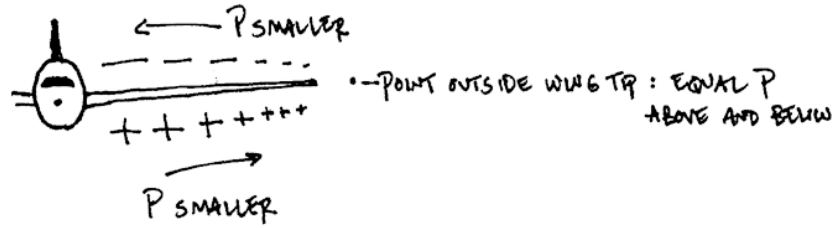 P SMALLER
POINT OUTSIDE WING TIP : EQUAL P
ABOVE AND BELOW
P SMALLER